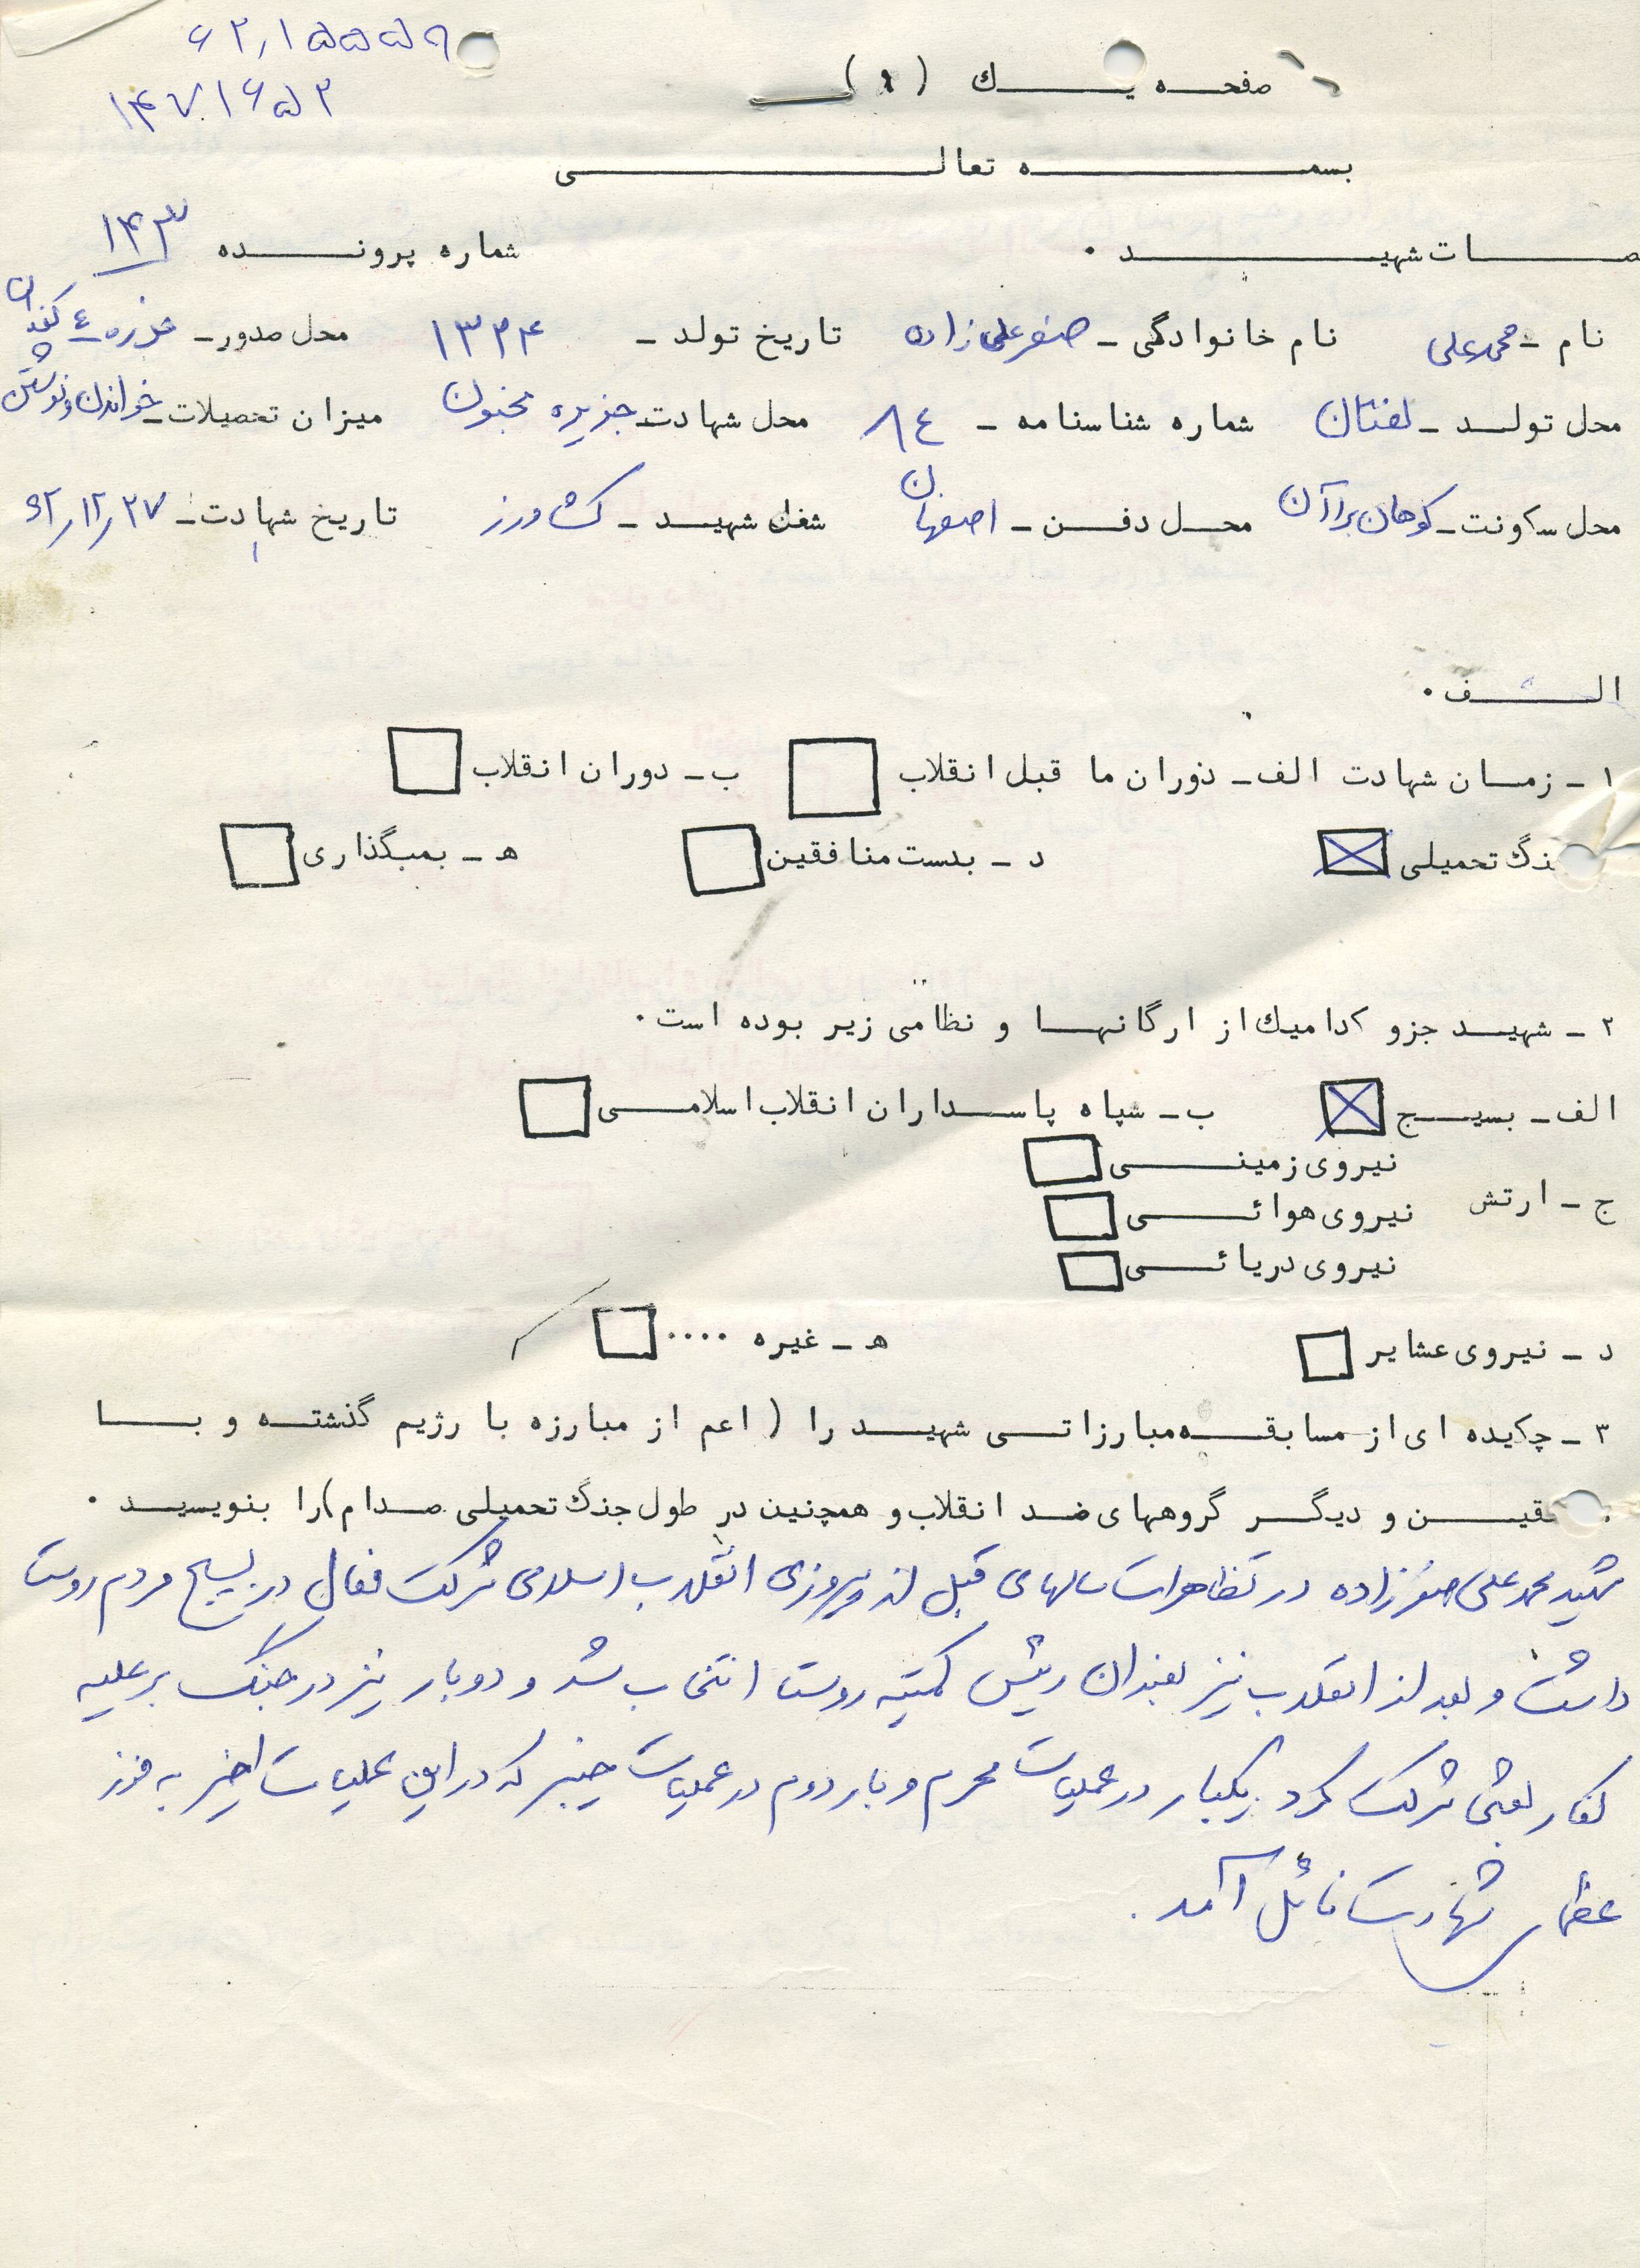 ۶۲,۱۵۵۵۹
۱۴۷۱۶۵۲
صفحه یک (۱)
بسمه تعالی
صات شهید . شماره پرونده ۱۴۳
نام - محمدعلی نام خانوادگی - صفرعلی زاده تاریخ تولد - ۱۳۲۴ محل صدور -
محل تولد - شماره شناسنامه - ۸٤ محل شهادت - جزیره مجنون میزان تحصیلات - خواندن و نوشتن
محل سکونت - کوهان براآن محل دفن - اصفهان شغل شهید - کشاورز تاریخ شهادت - ۶۲,۱۲,۲۷
الف .
۱ - زمان شهادت الف - دوران ما قبل انقلاب ب - دوران انقلاب
جنگ تحمیلی د - بدست منافقین ه - بمبگذاری
۲ - شهید جزو کدامیک از ارگانها و نظامی زیر بوده است .
الف - بسیج ب - سپاه پاسداران انقلاب اسلامی
نیروی زمینی
ج - ارتش نیروی هوائی
نیروی دریائی
د - نیروی عشایر ه - غیره ....
۳ - چکیده ای از مسابقه مبارزاتی شهید را ( اعم از مبارزه با رژیم گذشته و با
قین و دیگر گروههای ضد انقلاب و همچنین در طول جنگ تحمیلی صدام ) را بنویسید .
شهید محمدعلی صفرزاده در تظاهرات سالهای قبل از پیروزی انقلاب اسلامی شرکت فعال در بسیج مردم روستا
داشت و بعد از انقلاب نیز بعنوان رئیس کمیته روستا انتخاب شد و دوبار نیز در جنگ بر علیه
کفار بعثی شرکت کرد یکبار در عملیات محرم و بار دوم در عملیات خیبر که در این عملیات اخیر به فوز
عظمای شهادت نائل آمد .